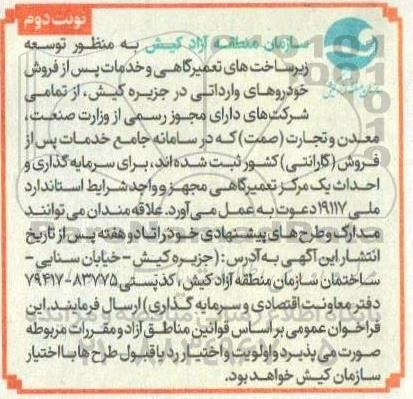 نوبت دوم
سازمان منطقه آزاد کیش به منظور توسعه
زیرساخت های تعمیرگاهی و خدمات پس از فروش
خودروهای وارداتی در جزیره کیش، از تمامی
شرکت های دارای مجوز رسمی از وزارت صنعت،
معدن و تجارت (صمت) که در سامانه جامع خدمات پس از
فروش (گارانتی) کشور ثبت شده اند، برای سرمایه گذاری و
احداث یک مرکز تعمیرگاهی مجهز و واجد شرایط استاندارد
ملی ۱۹۱۱۷ دعوت به عمل می آورد. علاقه مندان می توانند
مدارک و طرح های پیشنهادی خود را تا دو هفته پس از تاریخ
انتشار این آگهی به آدرس: (جزیره کیش - خیابان سنایی -
ساختمان سازمان منطقه آزاد کیش، کدپستی ۸۳۷۷۵-۷۹۴۱۷
دفتر معاونت اقتصادی و سرمایه گذاری) ارسال فرمایند. این
فراخوان عمومی بر اساس قوانین مناطق آزاد و مقررات مربوطه
صورت می پذیرد و اولویت و اختیار رد یا قبول طرح ها با اختیار
سازمان کیش خواهد بود.